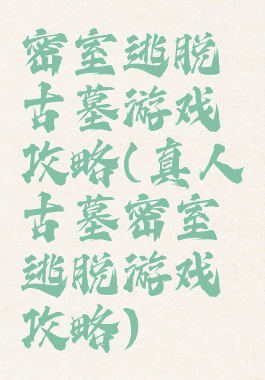 密室逃脱
古墓游戏
攻略(真人
古墓密室
逃脱游戏
攻略)